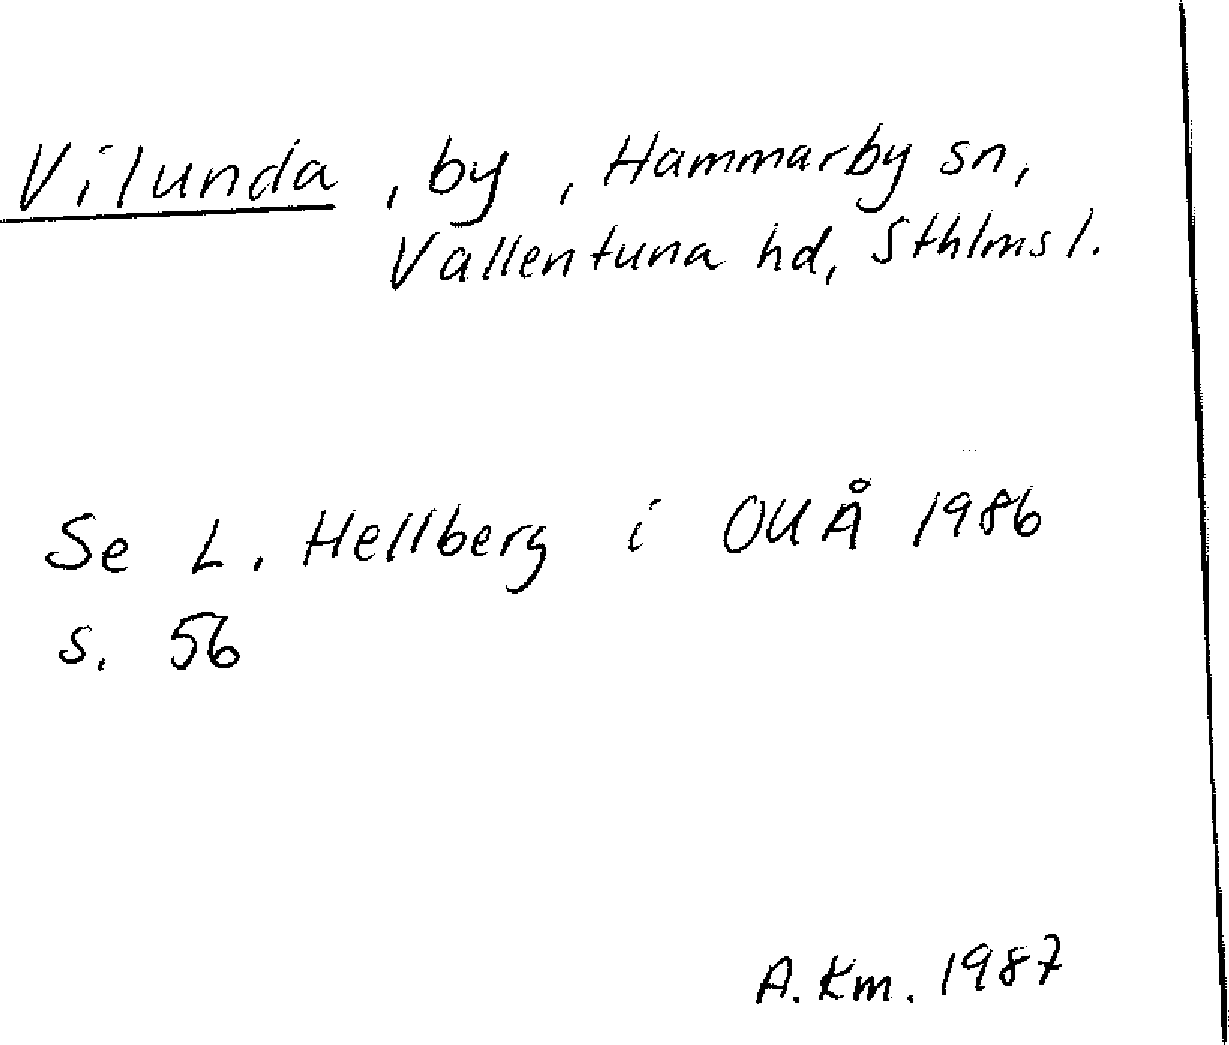 Vilunda, by, Hammarby sn,
Vallentuna hd, Sthlms l.
Se L. Hellberg i OUÅ 1986
s. 56
A. Km. 1987